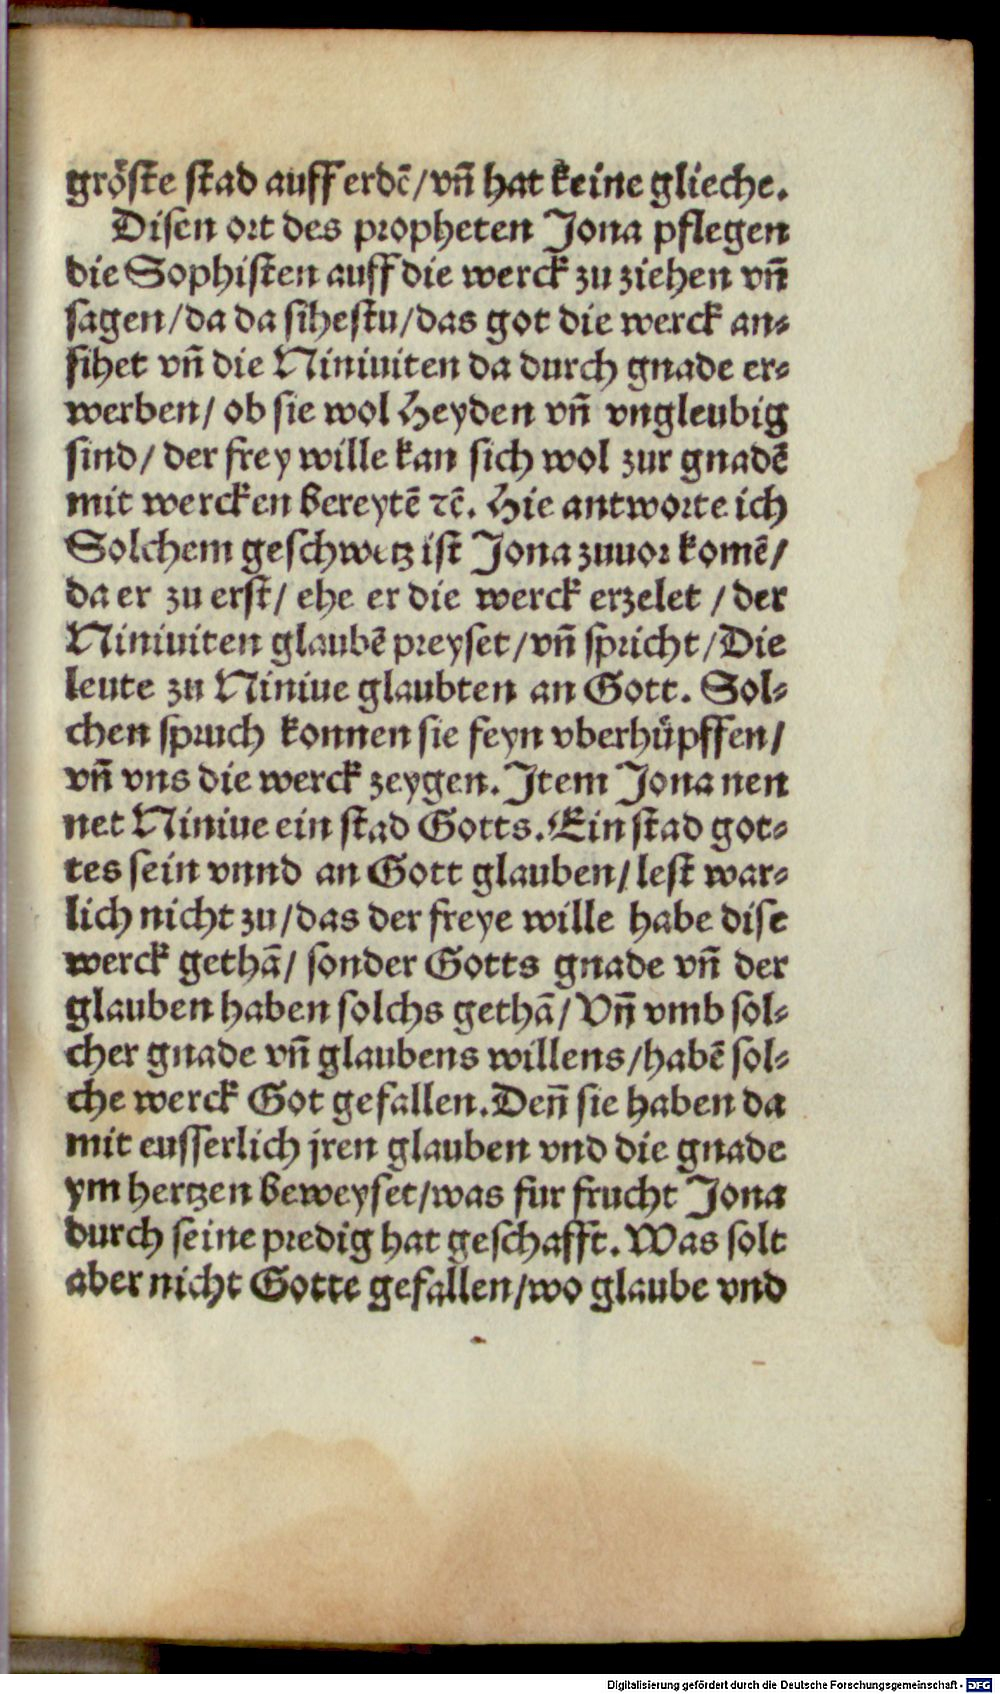 gröſte ſtad auff erdē/vn̄ hat keine glieche.
Diſen ort des propheten Jona pflegen
die Sophiſten auff die werck zu ziehen vn̄
ſagen/da da ſiheſtu/das got die werck an⸗
ſihet vn̄ die Niniuiten da durch gnade er⸗
werben/ ob ſie wol Heyden vn̄ vngleubig
ſind/ der frey wille kan ſich wol zur gnadē
mit wercken bereytē ꝛc̄. Hie antworte ich
Solchem geſchwetz iſt Jona zuuor komē/
da er zu erſt/ ehe er die werck erzelet / der
Niniuiten glaubē preyſet/vn̄ ſpricht/Die
leute zu Niniue glaubten an Gott. Sol⸗
chen ſpruch konnen ſie feyn vberhüpffen/
vn̄ vns die werck zeygen. Item Jona nen
net Niniue ein ſtad Gotts. Ein ſtad got⸗
tes ſein vnnd an Gott glauben/ leſt war⸗
lich nicht zu/das der freye wille habe diſe
werck gethā/ ſonder Gotts gnade vn̄ der
glauben haben ſolchs gethā/ Vn̄ vmb ſol⸗
cher gnade vn̄ glaubens willens/habē ſol⸗
che werck Got gefallen. Den̄ ſie haben da
mit euſſerlich jren glauben vnd die gnade
ym hertzen beweyſet/was fur frucht Jona
durch ſeine predig hat geſchafft. Was ſolt
aber nicht Gotte gefallen/wo glaube vnd
Digitalisierung gefördert durch die Deutsche Forschungsgemeinschaft - DFG